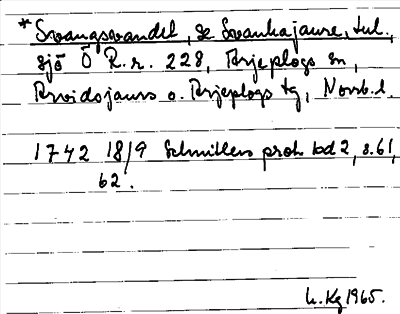 * Svangsvandet, se Svankajaure, tul.,
sjö Ö R.r. 228, Arjeplogs sn,
Arvidsjaurs o. Arjeplogs tg, Norrb. l.
1742 18/9 Schnitlers prot. bd 2, s. 61,
62.
Kg 1965.